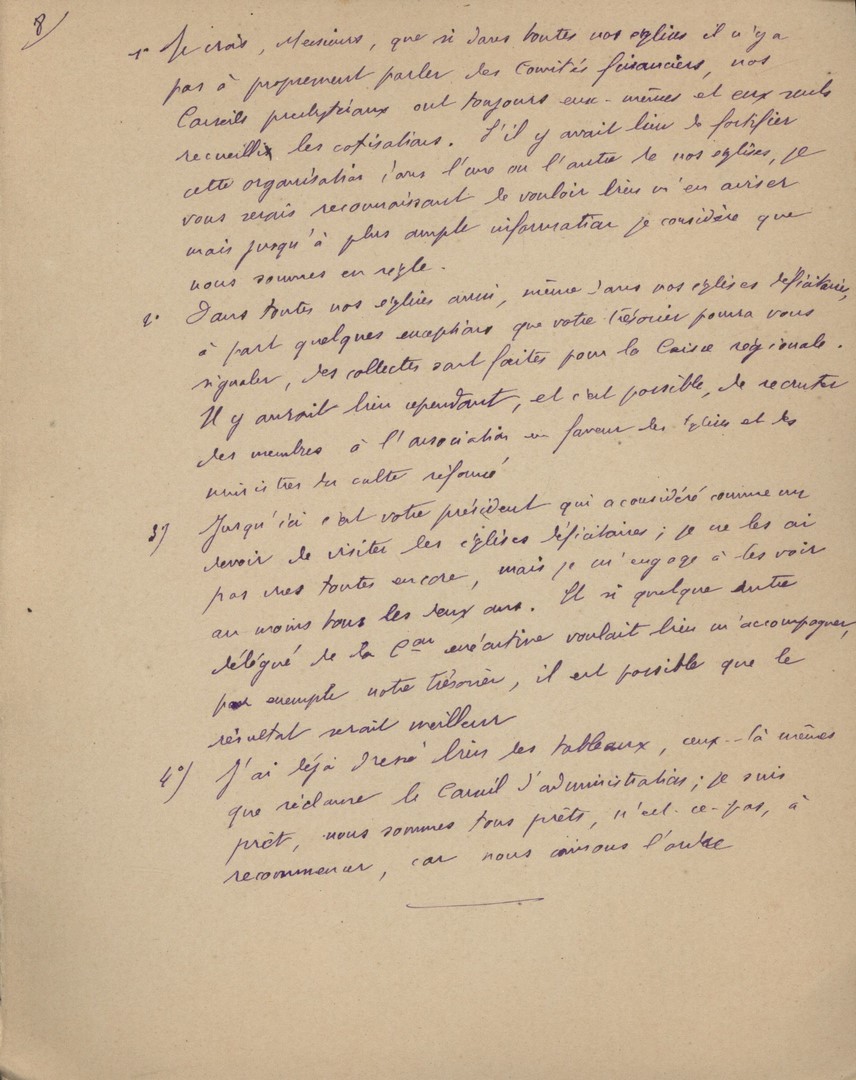 8/
1° Je crois, Messieurs, que si dans toutes nos églises il n'y a
pas à proprement parler des Comités financiers, nos
Conseils presbytéraux ont toujours eux-mêmes et eux seuls
recueilli les cotisations. S'il y avait lieu de fortifier
cette organisation dans l'une ou l'autre de nos églises, je
vous serais reconnaissant de vouloir bien m'en aviser
mais jusqu'à plus ample information je considère que
nous sommes en règle.
2° Dans toutes nos églises aussi, même dans nos églises déficitaires,
à part quelques exceptions que votre trésorier pourra vous
signaler, des collectes sont faites pour la Caisse régionale.
Il y aurait lieu cependant, et c'est possible, de recruter
des membres à l'association en faveur des Églises et des
ministres du culte réformé
3) Jusqu'ici c'est votre président qui a considéré comme un
devoir de visiter les églises déficitaires ; je ne les ai
pas vues toutes encore, mais je m'engage à les voir
au moins tous les deux ans. Et si quelque autre
délégué de la Con exécutive voulait bien m'accompagner,
par exemple notre trésorier, il est possible que le
résultat serait meilleur
4°) J'ai déjà dressé bien des tableaux, ceux-là mêmes
que réclame le Conseil d'administration ; je suis
prêt, nous sommes tous prêts, n'est-ce-pas, à
recommencer, car nous aimons l'ordre